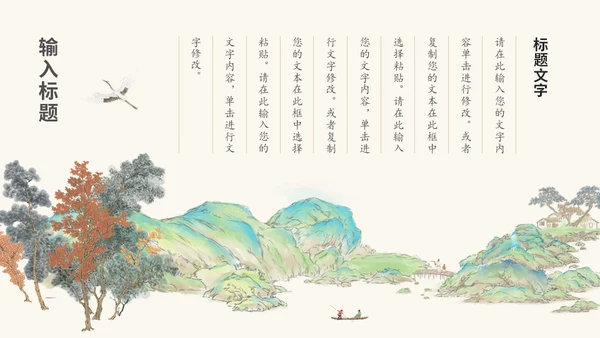 输入标题
标题文字
请在此输入您的文字内
容单击进行修改。或者
复制您的文本在此框中
选择粘贴。请在此输入
您的文字内容，单击进
行文字修改。或者复制
您的文本在此框中选择
粘贴。请在此输入您的
文字内容，单击进行文
字修改。